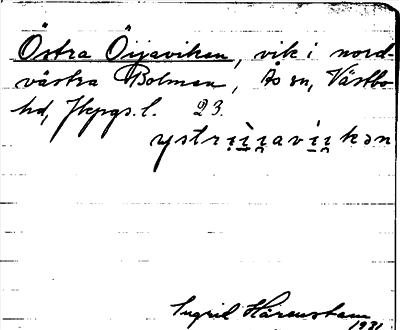 Östra Öijaviken, vik i nord-
västra Bolmen, Ås sn, Västbo
hd, Jkpgs. l. 23.
Ingrid Härenstam
1931